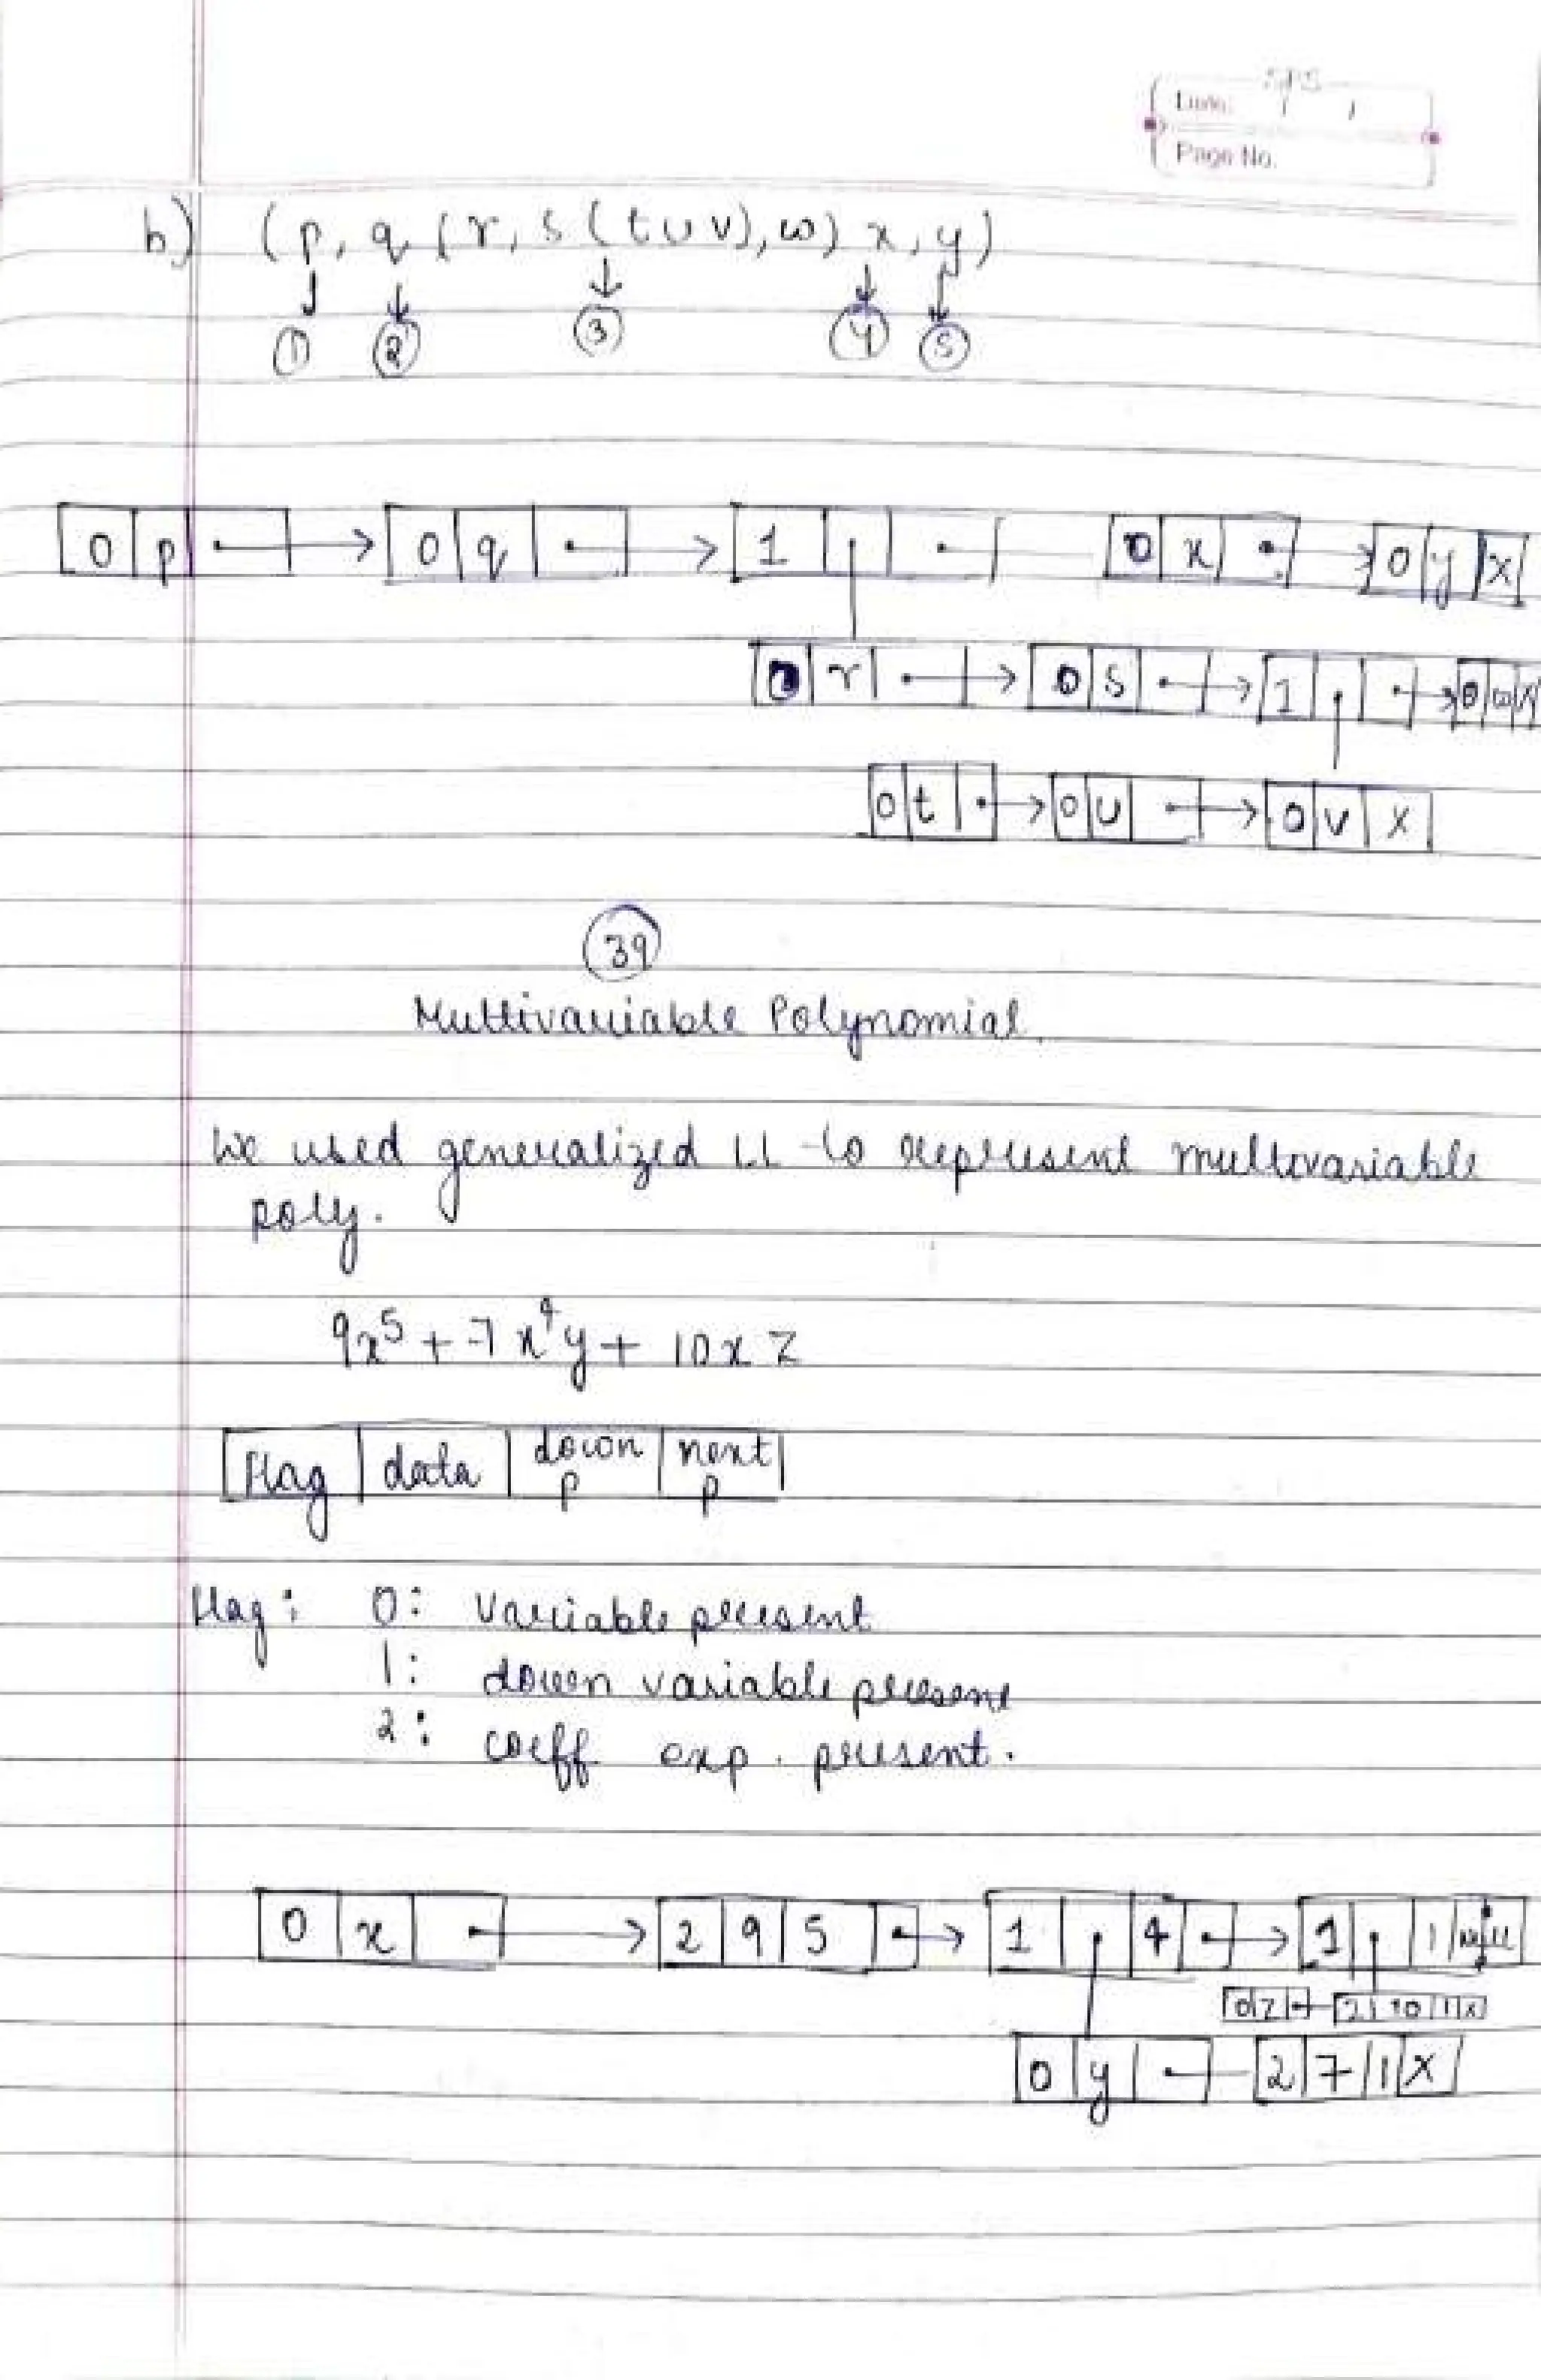 SPS
Date: / /
Page No.
b) (p, q (r, s (t u v), w) x, y)
① ② ③ ④ ⑤
0 p 0 q 1 0 x 0 y x
0 r 0 s 1 0 w x
0 t 0 u 0 v x
39
Multivariable Polynomial.
We used generalized LL to represent multivariable
poly.
9x⁵ + 7x⁴y + 10xz
Flag data down p next p
Flag: 0: Variable present
1: down variable present
2: coeff exp. present.
0 x 2 9 5 1 4 1 1 null
0 z 2 10 1 x
0 y 2 7 1 x